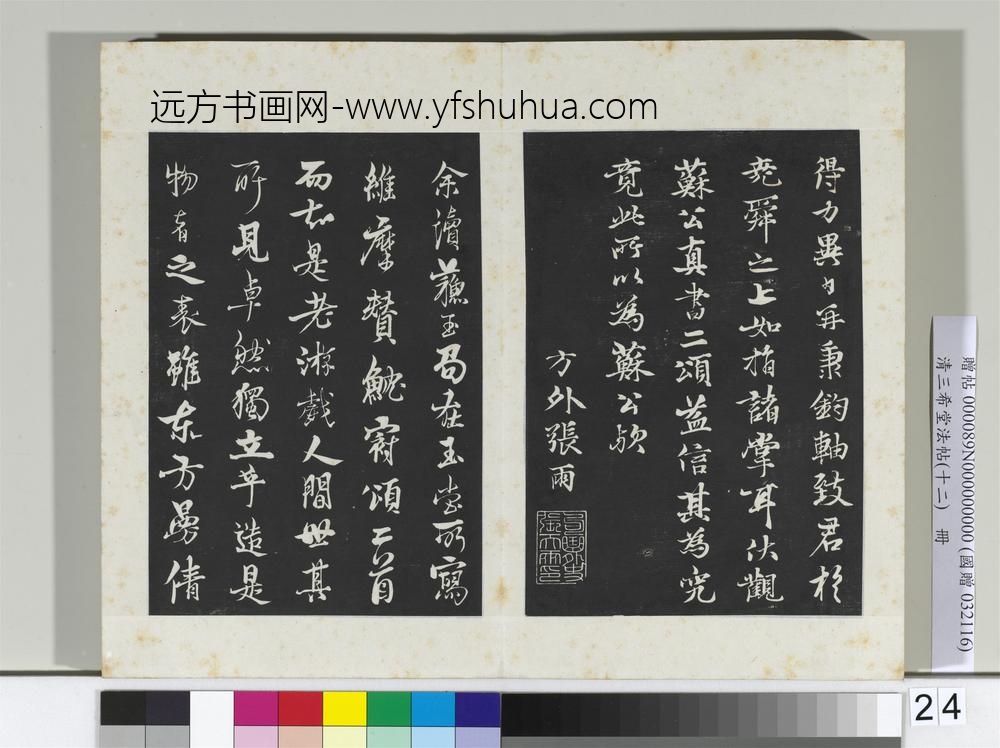 远方书画网-www.yfshuhua.com
得力異日年秉鈞軸致君於
堯舜之上如指諸掌耳伏觀
蘇公真書二頌益信其為究
竟此所以為蘇公歟
方外張雨
余讀蘓玉局在玉堂所寫
維摩贊魷冠頌二首
而知是老游戲人間世其
所見卓然獨立乎造是
物者之表雖東方曼倩
贈帖 000089N000000000 (國贈 032116)
清三希堂法帖(十二) 冊
24